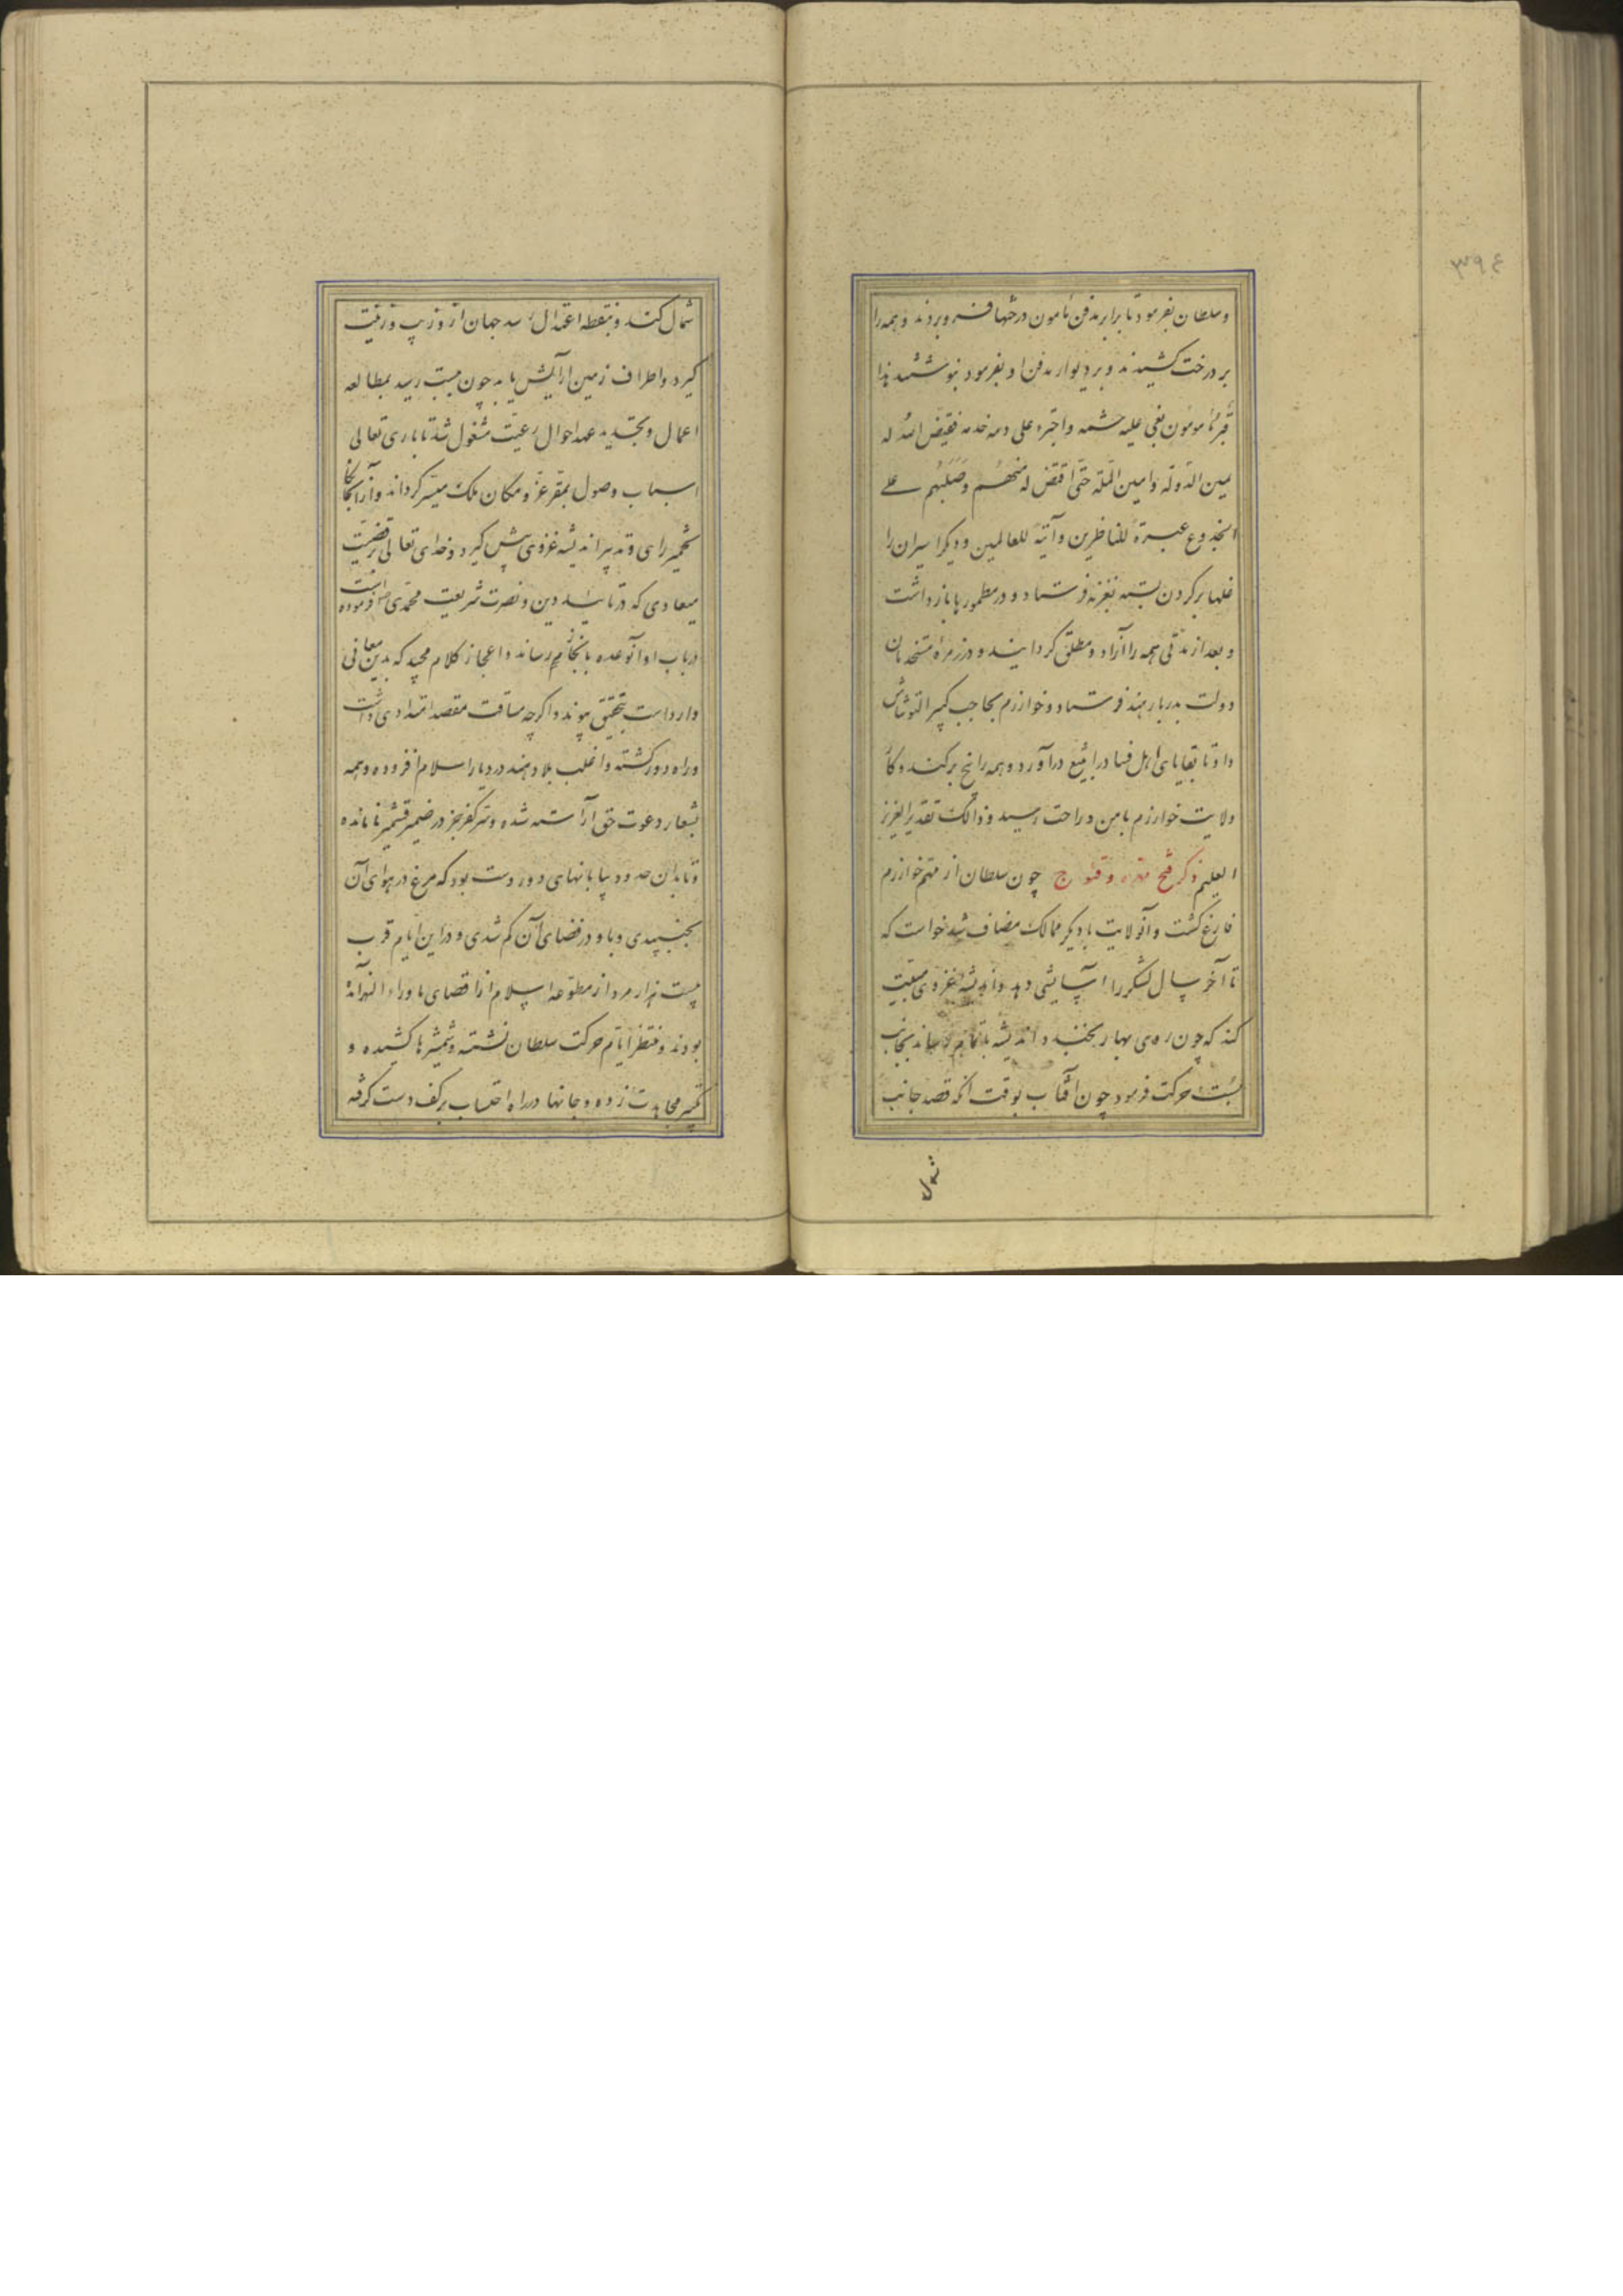 ۳۹۴
و سلطان بفرمود تا برابر مدفن مامون درختها فرو بردند و همه را
بر درخت کشیدند و بر دیوار مدفن او بفرمود بنوشتند هذا
قبر مامون بغی علیه حشمه واجترء علی دمه خدمه فقیض الله له
یمین الدوله و امین المله حتی اقتص له منهم و صلبهم علی
الجذوع عبرة للناظرین و آیة للعالمین و دیگر اسیران را
غلها بر کردن بسته بغزنه فرستاد و در مطمورها بازداشت
و بعد از مدتی همه را آزاد و مطلق کردانید و در زمره مستخدمان
دولت بدیار هند فرستاد و خوارزم بحاجب کبیر التونتاش
داد تا بقایای اهل فساد را تتبع درآورد و همه را بیخ برکند و کار
ولایت خوارزم بامن و راحت رسید و ذالک تقدیر العزیز
العلیم ذکر فتح مهره و قنوج چون سلطان از مهم خوارزم
فارغ کشت و آنولایت با دیکر ممالک مضاف شد خواست که
تا آخر سال لشکر را آسایشی دهد و اندیشه غزوی
کند که چون روی بهار بخندد اندیشه باتمام رساند بجانب
بست حرکت فرمود چون آفتاب بوقت آنکه قصد جانب
شمال
شمال کند و بنقطه اعتدال رسد جهان ازو زیب و زینت
کیرد و اطراف زمین آرایش یابد چون ببست رسید بمطالعه
اعمال و بتجدید عهد احوال رعیت مشغول شد تا باری تعالی
اسباب وصول بمقر عز و مکان ملک میسر کرداند و از آنجا
تخمیر رای و تدبیر اندیشه غزوی پیش کیرد و خدای تعالی بر قضیت
میعادی که در تایید دین و نصرت شریعت محمدی ص فرموده است
در باب او آنوعده بانجاز رساند و اعجاز کلام مجید که بدین معانی
وارد است بتحقیق پیوندد و اکرچه مسافت مقصد امتدادی داشت
و راه دور کشته و اغلب بلاد هند در دیار اسلام افزوده و همه
بشعار دعوت حق آراسته شده و سر کفر جز در ضمیر قشمیر نامانده
و تا بدان حدود بیابانهای دور دست بود که مرغ در هوای آن
بجنبیدی و باد در فضای آن کم شدی و در این ایام قرب
بیست هزار مرد از مطوعه اسلام از اقصای ماوراء النهر آمده
بودند و منتظر ایام حرکت سلطان نشسته و شمشیرها کشیده و
تکبیر مجاهدت زده و جانها در راه احتساب بر کف دست کرفته